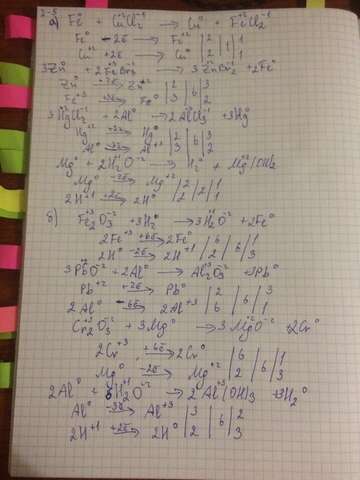 2-5
а) Fe⁰ + Cu⁺²Cl₂⁻¹ → Cu⁰ + Fe⁺²Cl₂⁻¹
Fe⁰ -2ē→ Fe⁺² | 2 | 1 | 1
Cu⁺² +2ē→ Cu⁰ | 2 | 1
3Zn⁰ + 2Fe⁺³Br₃⁻¹ → 3Zn⁺²Br₂⁻¹ + 2Fe⁰
Zn⁰ -2ē→ Zn⁺² | 2 | 6 | 3
Fe⁺³ +3ē→ Fe⁰ | 3 | 2
3Hg⁺²Cl₂⁻¹ + 2Al⁰ → 2Al⁺³Cl₃⁻¹ + 3Hg⁰
Hg⁺² +2ē→ Hg⁰ | 2 | 6 | 3
Al⁰ → Al⁺³ | 3 | 2
Mg⁰ + 2H₂⁺¹O⁻² → H₂⁰ + Mg⁺²(OH)₂
Mg⁰ -2ē→ Mg⁺² | 2 | 2 | 1
2H⁺¹ +2ē→ 2H⁰ | 2 | 1
б) Fe₂⁺³O₃⁻² + 3H₂⁰ → 3H₂⁺¹O⁻² + 2Fe⁰
2Fe⁺³ +6ē→ 2Fe⁰ | 6 | 6 | 1
2H⁰ -2ē→ 2H⁺¹ | 2 | 3
3Pb⁺²O⁻² + 2Al⁰ → Al₂⁺³O₃⁻² + 3Pb⁰
Pb⁺² +2ē→ Pb⁰ | 2 | 6 | 3
2Al⁰ -6ē→ 2Al⁺³ | 6 | 1
Cr₂⁺³O₃⁻² + 3Mg⁰ → 3Mg⁺²O⁻² + 2Cr⁰
2Cr⁺³ +6ē→ 2Cr⁰ | 6 | 6 | 1
Mg⁰ -2ē→ Mg⁺² | 2 | 3
2Al⁰ + 6H₂⁺¹O⁻² → 2Al⁺³(OH)₃ + 3H₂⁰
Al⁰ -3ē→ Al⁺³ | 3 | 6 | 2
2H⁺¹ +2ē→ 2H⁰ | 2 | 3